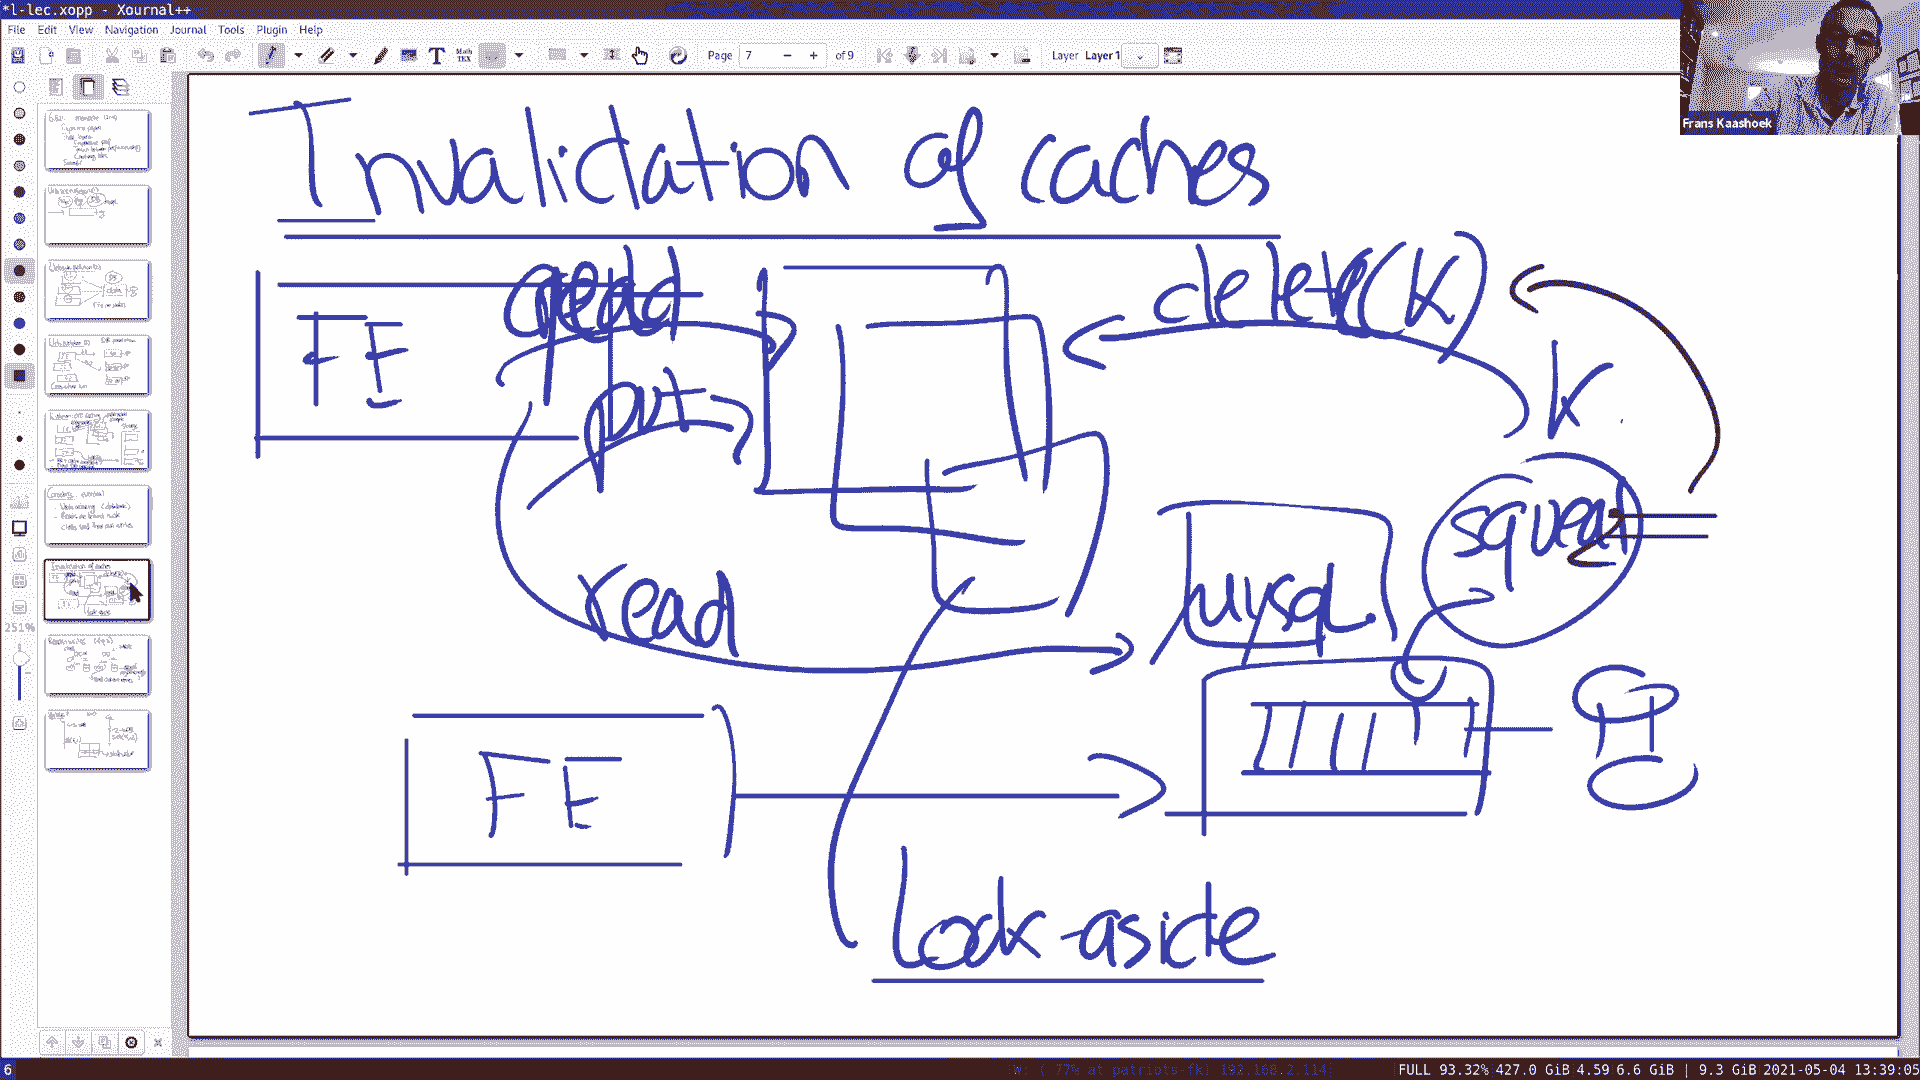 *l-lec.xopp - Xournal++
File Edit View Navigation Journal Tools Plugin Help
Page 7 of 9 Layer Layer 1
Frans Kaashoek
Invalidation of caches
FE
put
delete(k)
k
squeal
read
mysql
FE
look-aside
251%
6
77% at patriots-fk) 192.168.2.114
FULL 93.32% 427.0 GiB 4.59 6.6 GiB | 9.3 GiB 2021-05-04 13:39:05